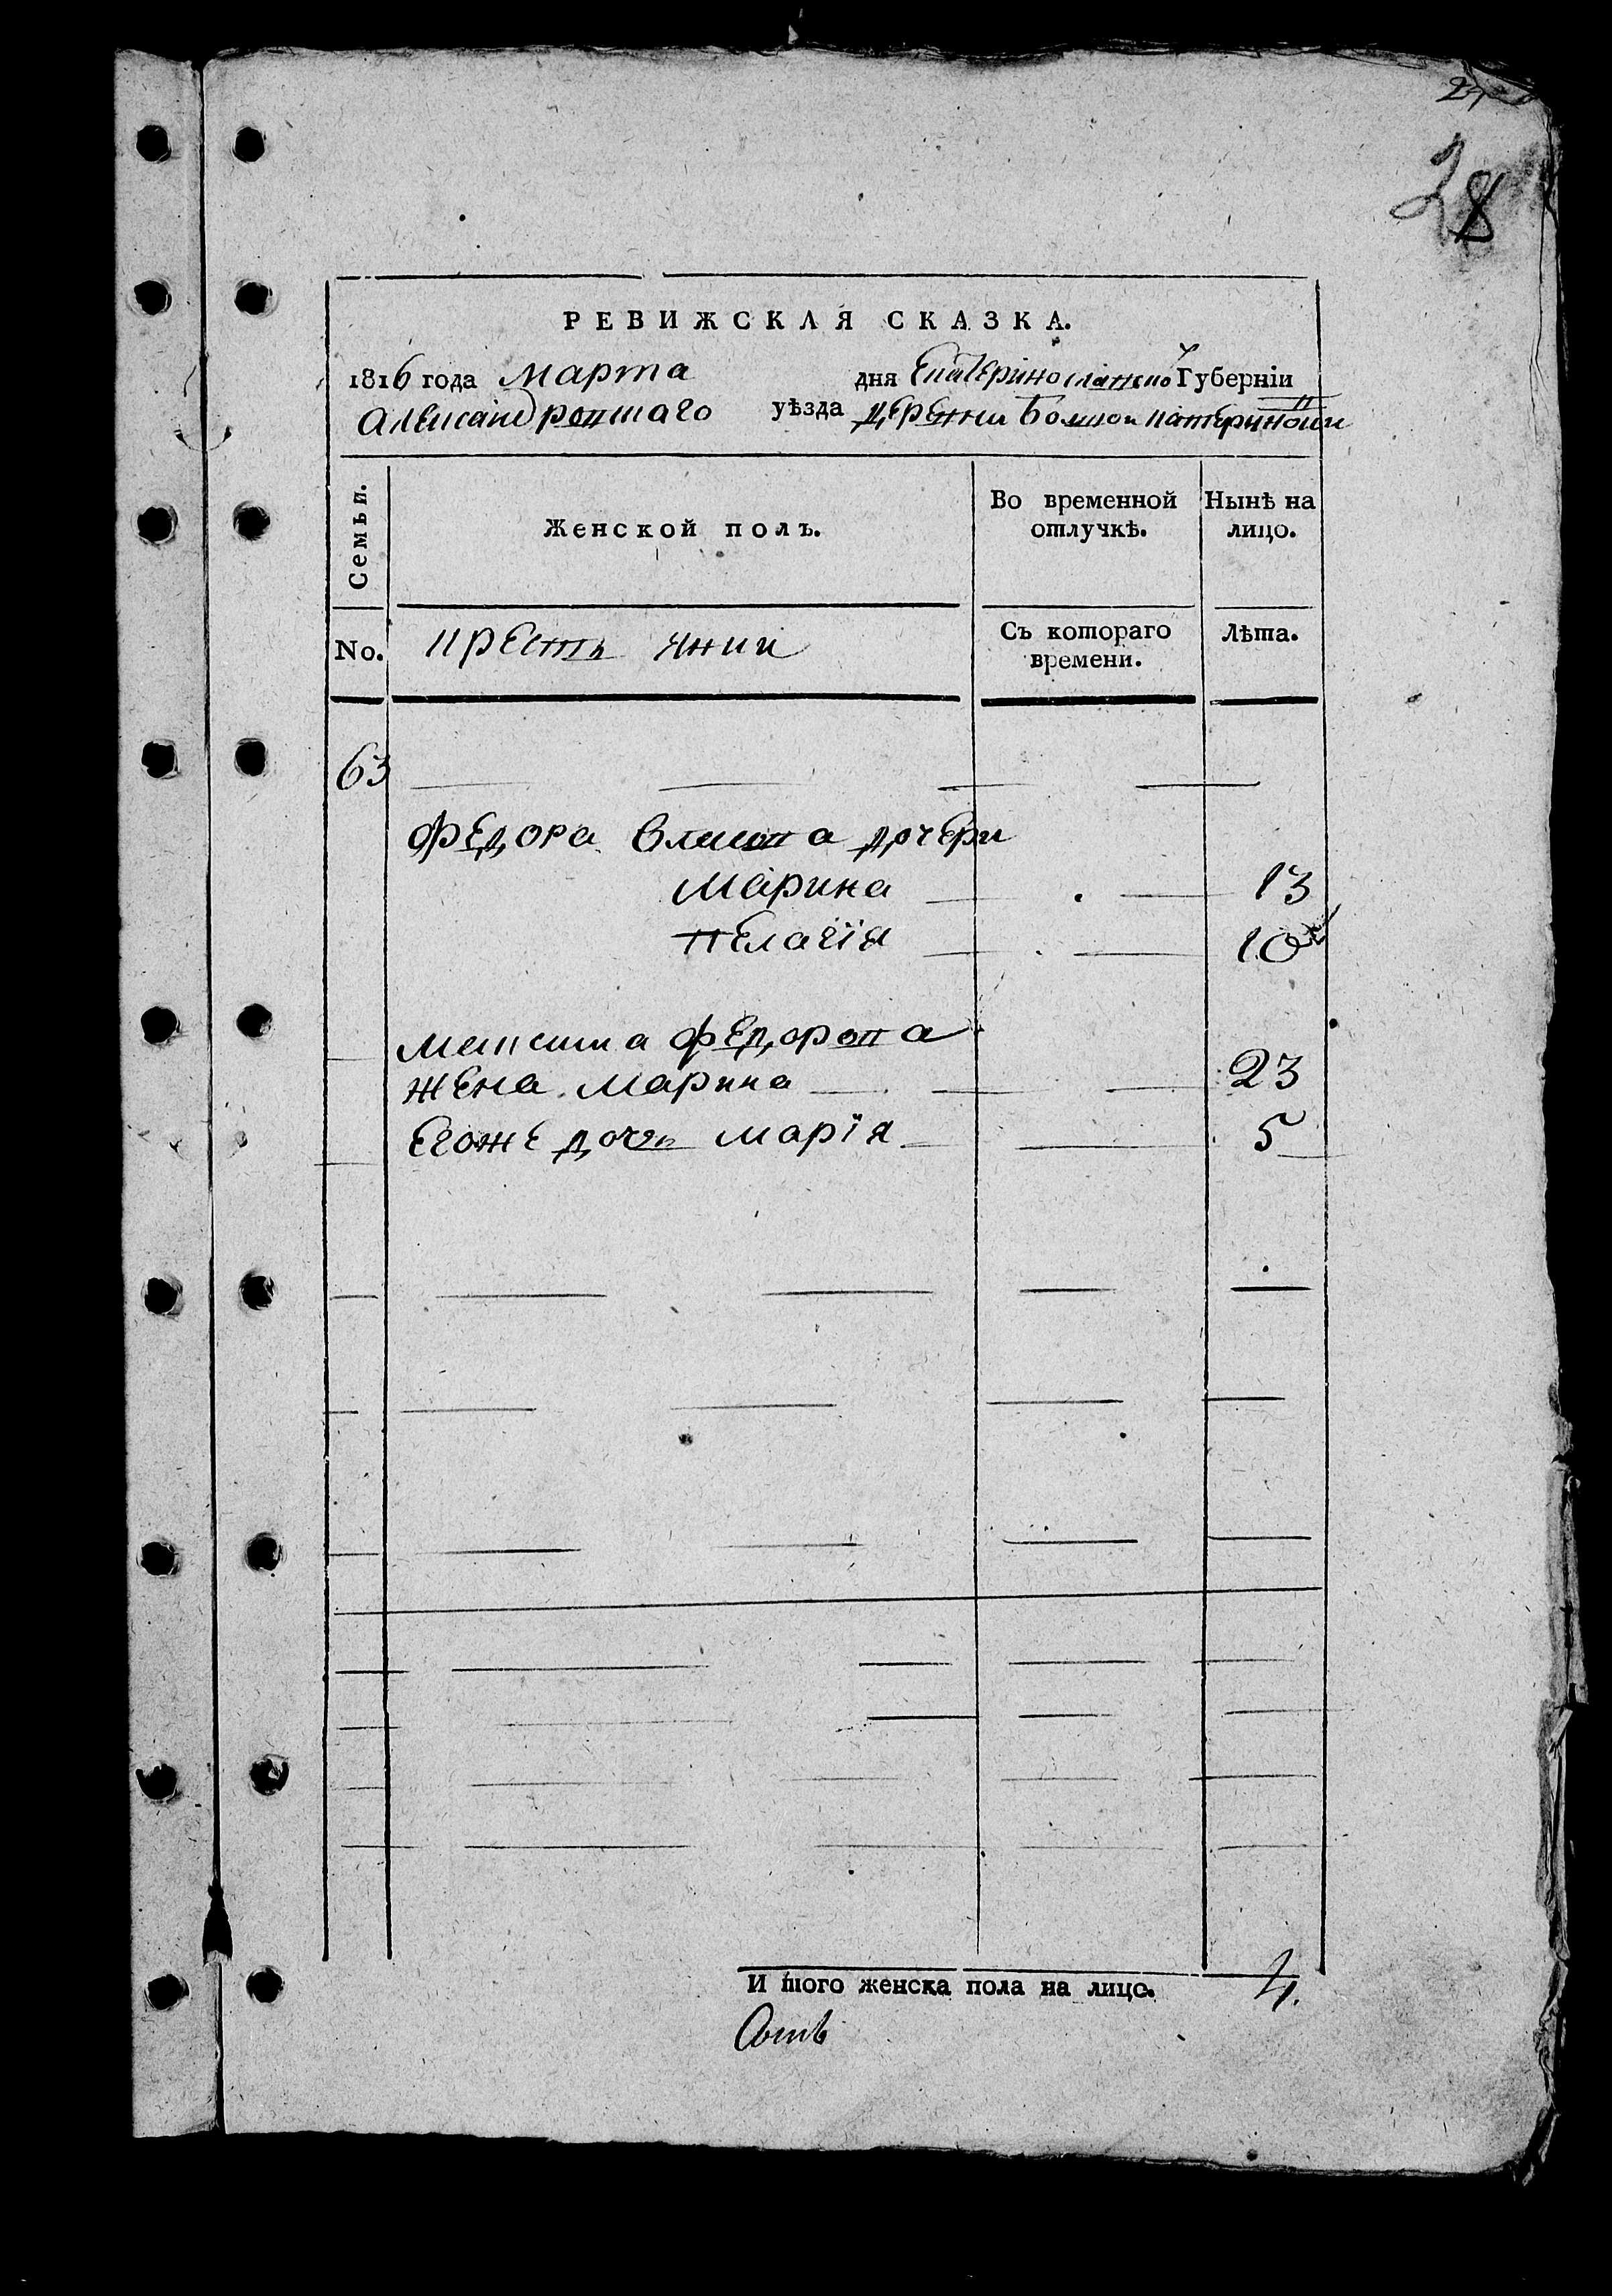 24
28
РЕВИЖСКАЯ СКАЗКА.
1816 года Марта дня Екатеринославской Губернiи
Александровшаго уѣзда деревни Болшой катериновки
Семьи.
Женской полъ.
Во временной отлучкѣ.
Нынѣ на лицо.
No.
крестьянии
Съ котораго времени.
Лѣта.
63
Федора власова дочери
Марина 13
Пелагiя 10
Максима Федорова
жена Марина 23
Егоже дочь Марiя 5
И того женска пола на лицо. 4.